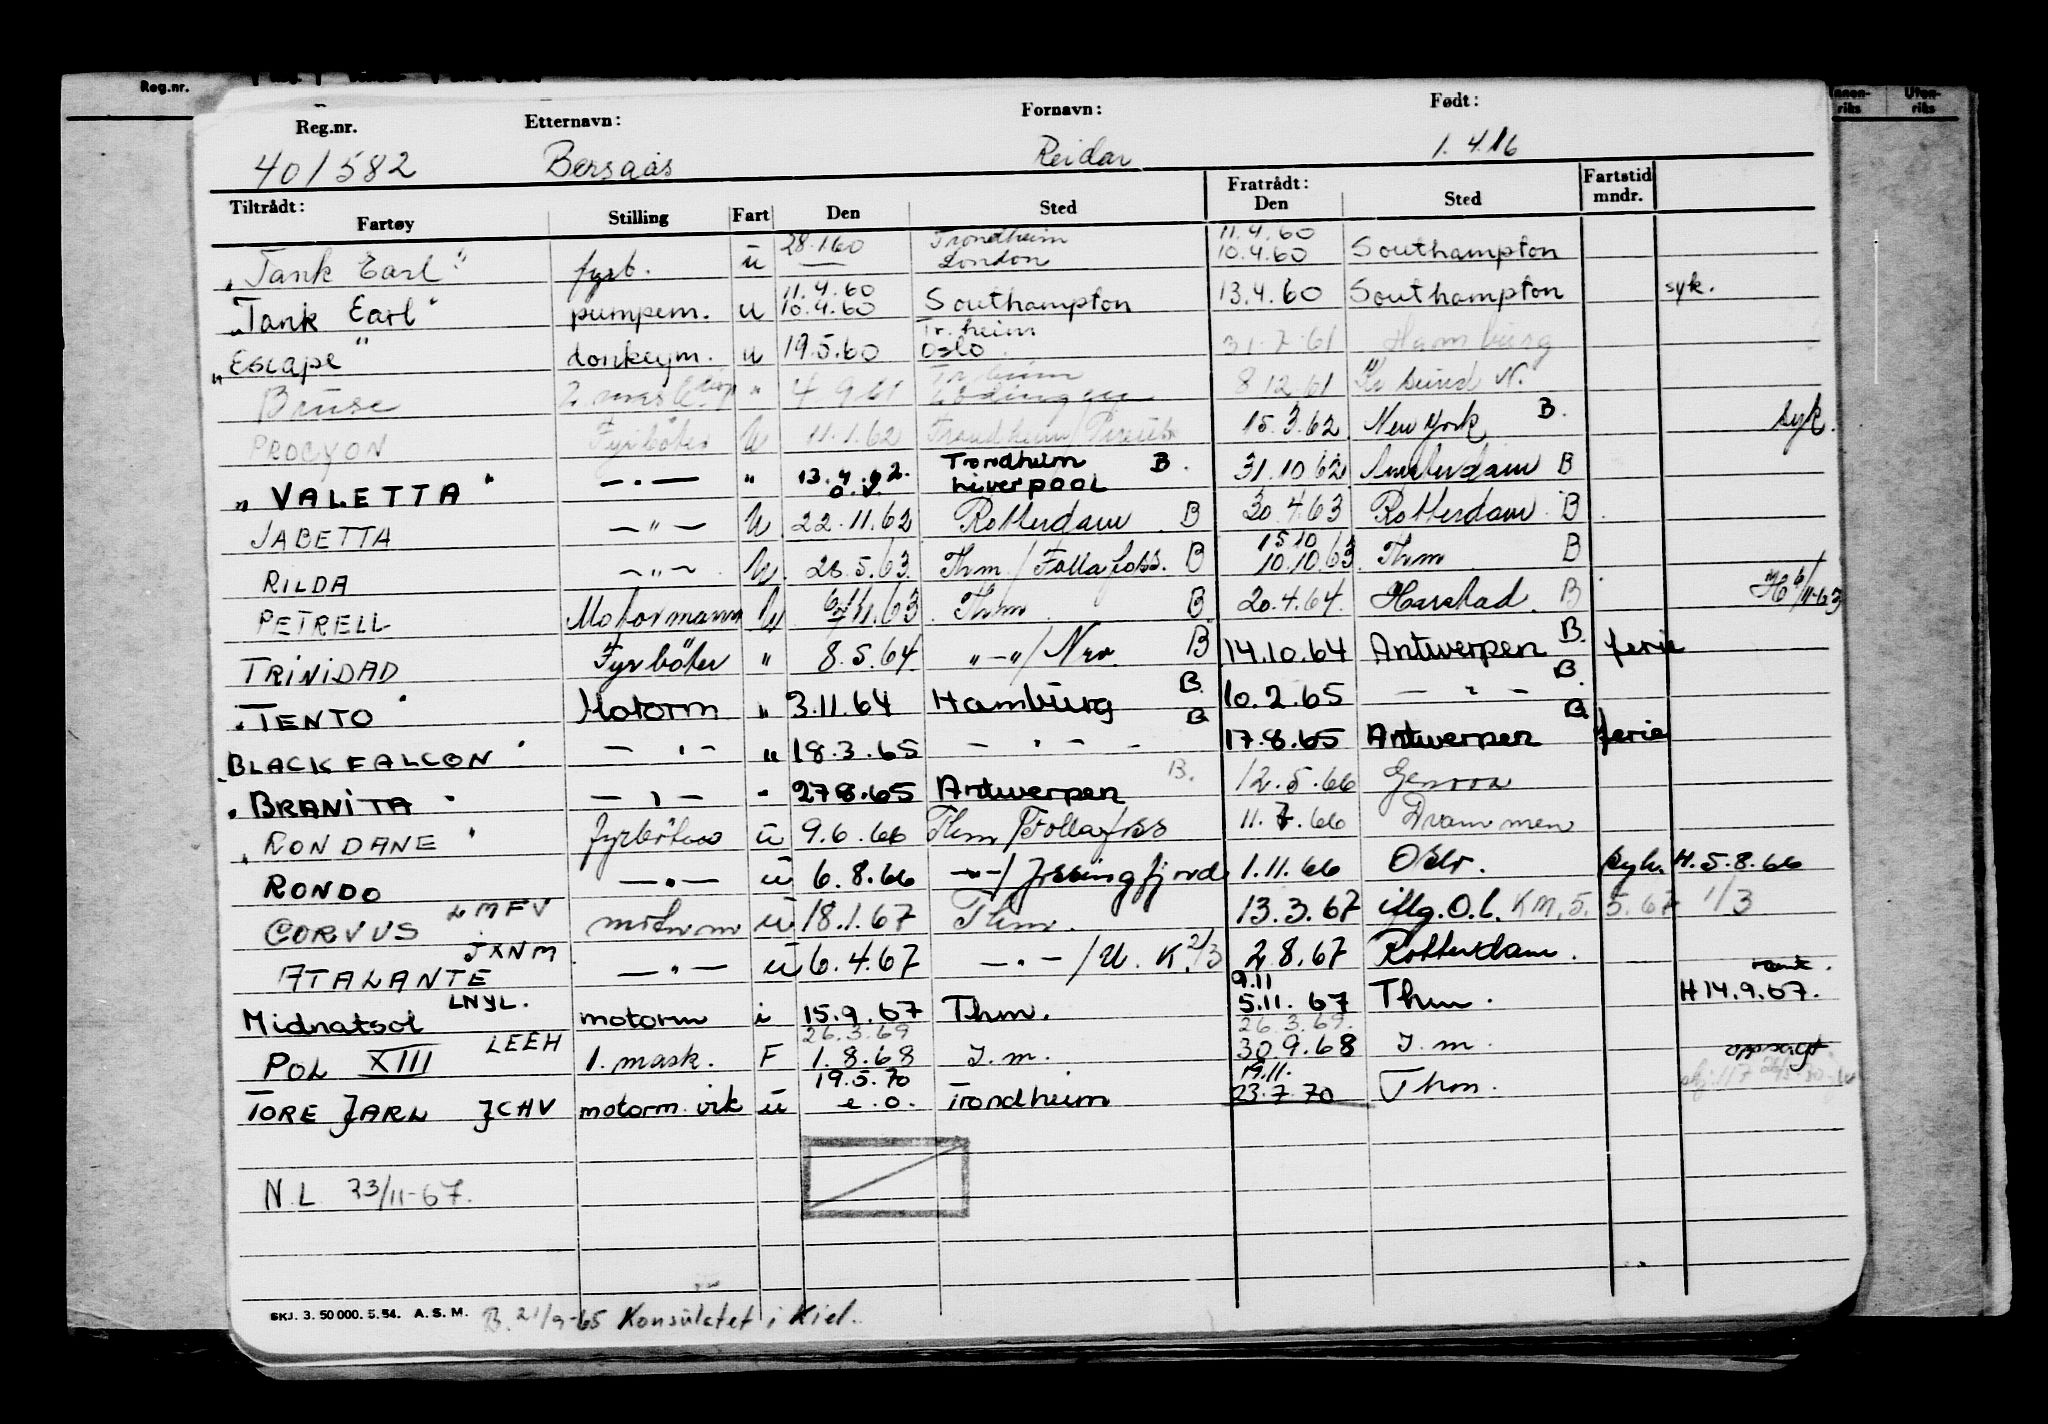 Reg.nr.
Reg.nr. Etternavn: Fornavn: Født:
40/582 Bersaas Reidar 1.4.16
Tiltrådt: Fratrådt: Fartstid
Fartøy Stilling Fart Den Sted Den Sted mndr.
28.1.60 Trondheim 11.4.60
"Tank Earl" fyrb. u London 10.4.60 Southampton
11.4.60
"Tank Earl" pumpem. u 10.4.60 Southampton 13.4.60 Southampton syk.
Tr.heim
"Escape" donkeym. u 19.5.60 Oslo 31.7.61 Hamburg
Bruse " 4.9.61 8.12.61 Kr sund N.
PROCYON Fyrbøter U 11.1.62 Trondheim/Pireus 15.3.62 New York B. syk.
Trondheim B.
"VALETTA" —"— " 13.4.62. Liverpool 31.10.62 Amsterdam B
JABETTA —"— U 22.11.62 Rotterdam B 30.4.63 Rotterdam B
15.10
RILDA —"— U. 28.5.63 Thm/Follafoss. B 10.10.63 Thm B
PETRELL Motormann U 11.63 Thm B 20.4.64. Harstad. B
TRINIDAD Fyrbøter " 8.5.64. "—"/Nrv. B 14.10.64 Antwerpen B. ferie
"TENTO" Motorm " 3.11.64 Hamburg B. 10.2.65 — " — B.
"BLACK FALCON" — " — " 18.3.65 — " — B 17.8.65 Antwerpen B ferie
"BRANITA" — " — " 27.8.65 Antwerpen B. 12.5.66 Genova
"RONDANE" fyrbøter u 9.6.66 Thm/Follafoss 11.7.66 Drammen
RONDO —"— u 6.8.66 —"—/Jøssingfjord 1.11.66 Oslo. syk. H.5.8.66
CORVUS LMFV motorm u 18.1.67 Thm. 13.3.67 iflg.O.l. KM.5.5.67 1/3
ATALANTE JXNM —"— u 6.4.67 —"—/U.K. 2/3 2.8.67 Rotterdam.
9.11
Midnatsol LNYL. motorm i 15.9.67 Thm. 5.11.67 Thm. H 14.9.67.
26.3.69 26.3.69.
POL XIII LEEH 1. mask. F 1.8.68 I.m. 30.9.68 I.m. oppsagt
19.5.70 19.11.
TORE JARL JCHV motorm. vik u e.o. Trondheim 23.7.70 Thm.
N.L 23/11-67.
SKJ. 3. 50 000. 5. 54. A. S. M. B. 21/9-65 Konsulatet i Kiel.